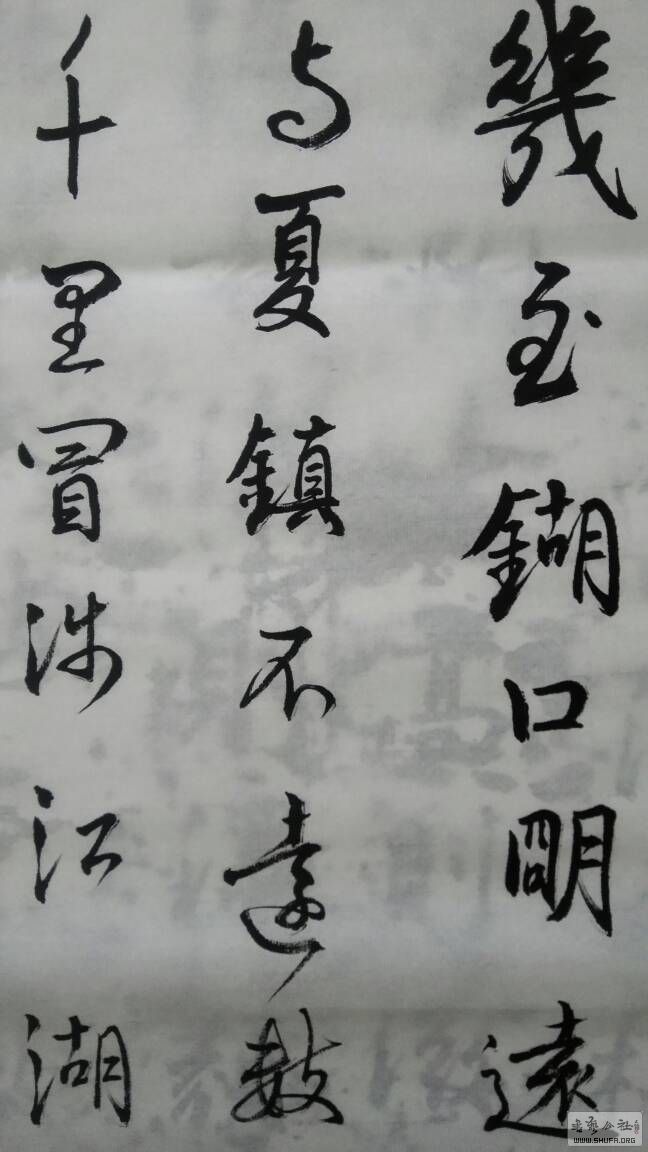 幾至鍸口朙遠
与夏鎮不遠數
千里冒涉江湖
書藝公社
WWW.SHUFA.ORG